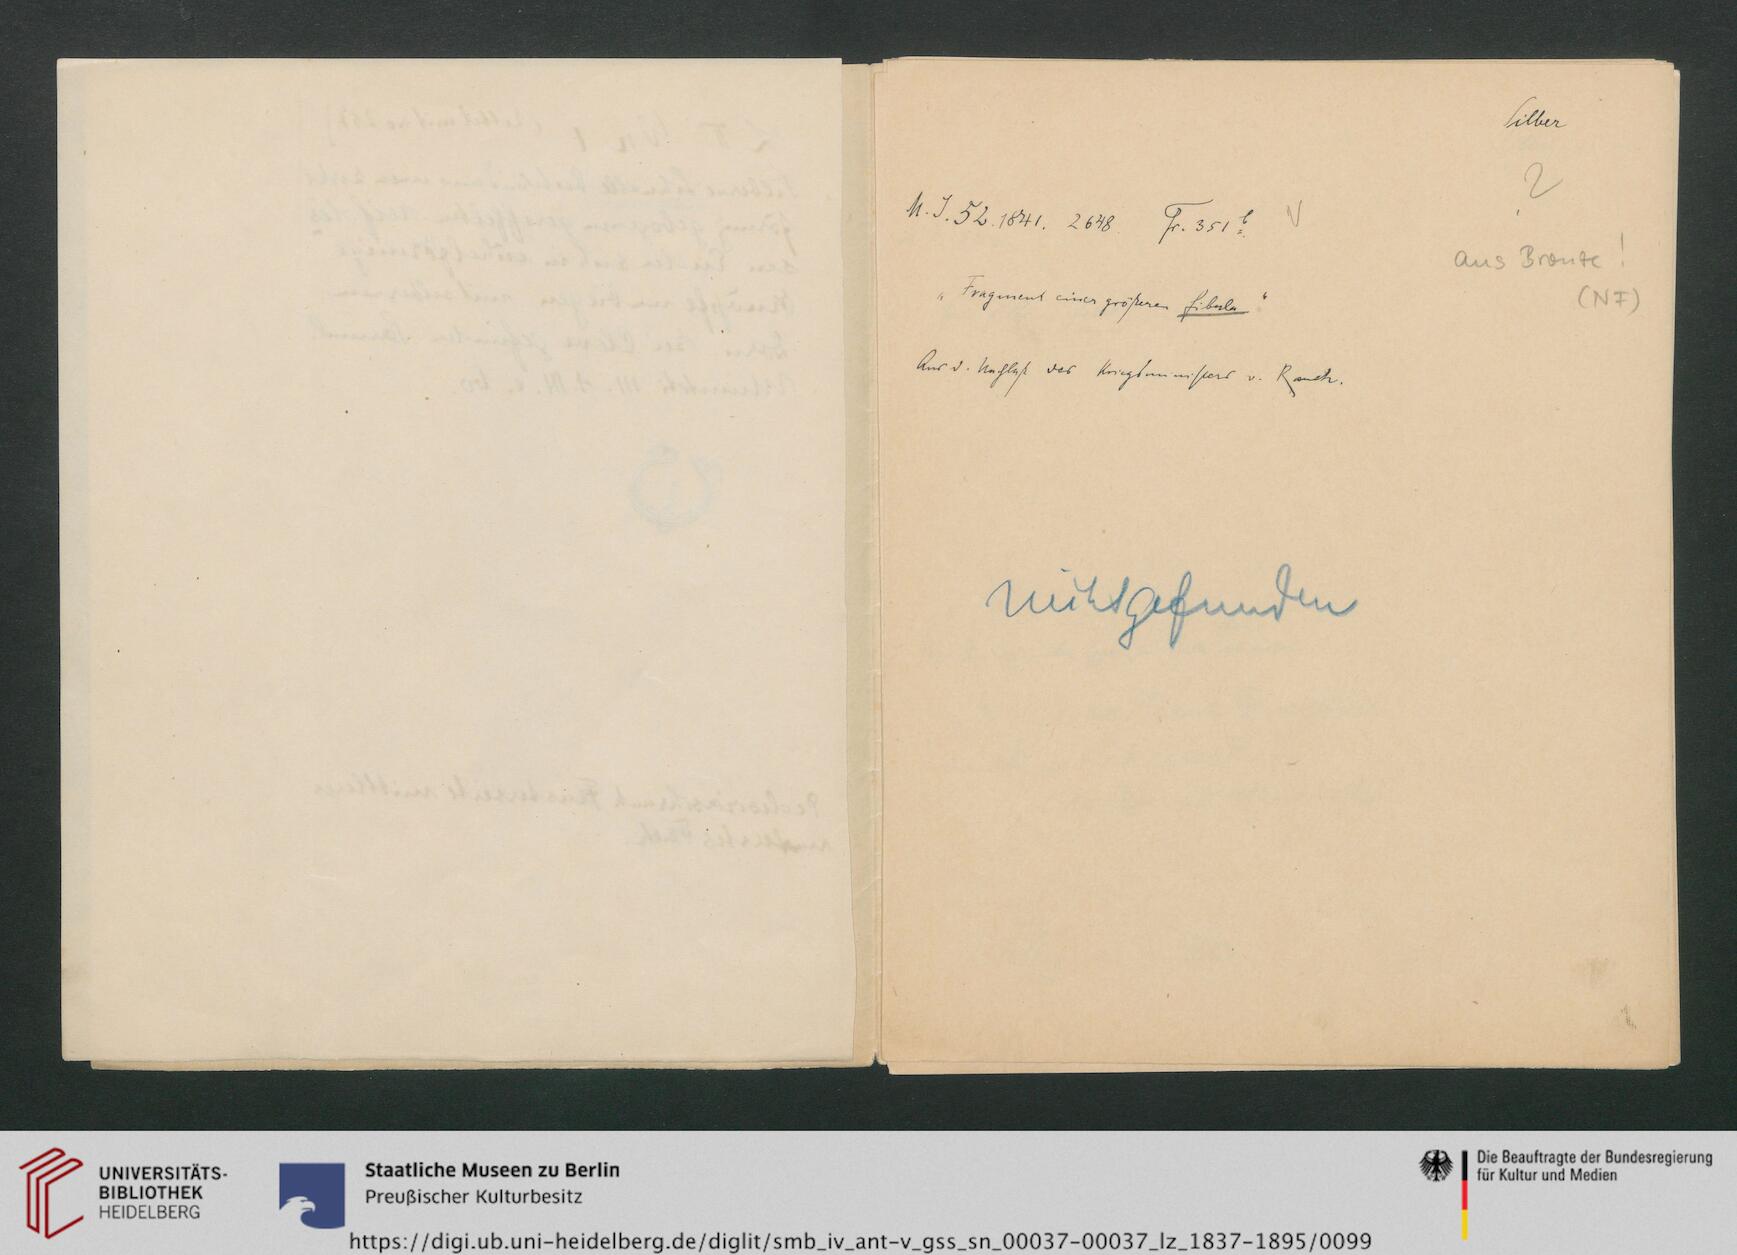 Silber
?
M. I. 52. 1841. 2648. Fr. 351 b
aus Bronze!
(NF)
„Fragment einer größeren Fibula“
Aus d. Nachlaß des Kriegsministers v. Rauch.
nicht gefunden
UNIVERSITÄTS-
BIBLIOTHEK
HEIDELBERG
Staatliche Museen zu Berlin
Preußischer Kulturbesitz
Die Beauftragte der Bundesregierung
für Kultur und Medien
https://digi.ub.uni-heidelberg.de/diglit/smb_iv_ant-v_gss_sn_00037-00037_lz_1837-1895/0099